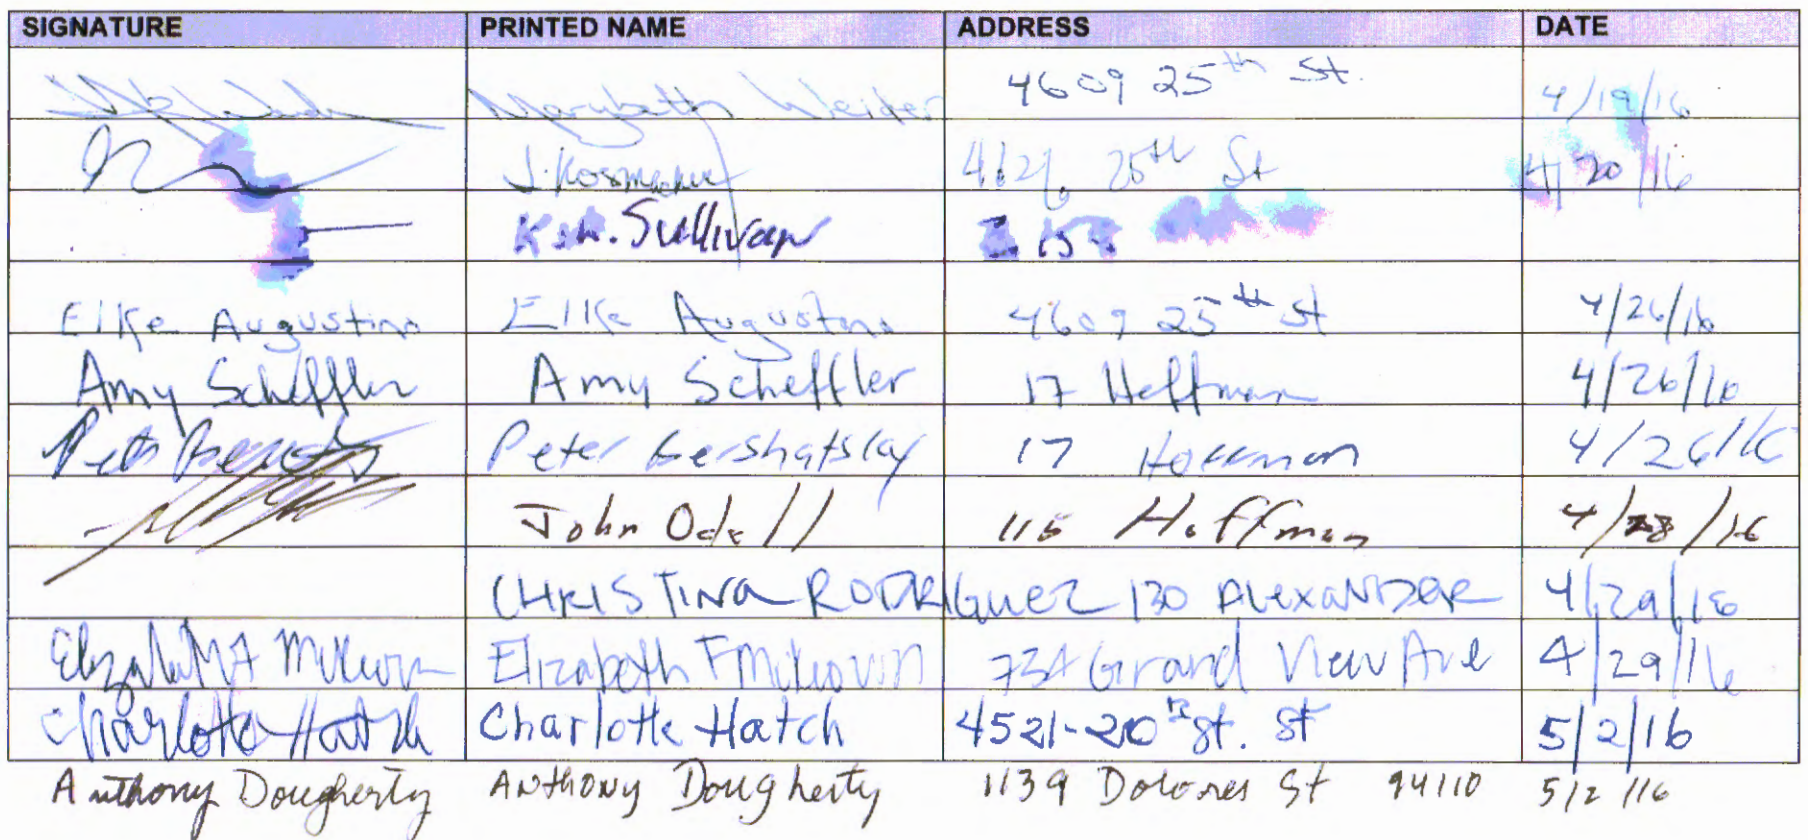 SIGNATURE PRINTED NAME ADDRESS DATE
Marybeth Weider 4609 25th St. 4/19/16
25th St 4/20/16
Sullivan
Elke Augustine Elke Augustine 4609 25th St 4/26/16
Amy Scheffler Amy Scheffler 17 Hoffman 4/26/16
Peter Gershatsky 17 Hoffman 4/26/16
John Odell 115 Hoffman 4/28/16
CHRISTINA RODRIGUEZ 130 ALEXANDER 4/29/16
Elizabeth F Elizabeth F 734 Grand View Ave 4/29/16
Charlotte Hatch Charlotte Hatch 4521-20th St. St 5/2/16
Anthony Dougherty ANTHONY Dougherty 1139 Dolores St 94110 5/2/16